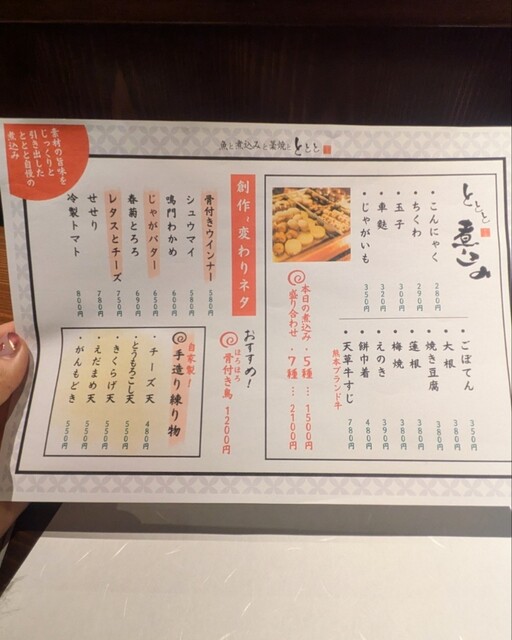 魚と煮込みと釜焼と ととと
素材の旨味を
じっくりと
引き出した
ととと自慢の
煮込み
ととと 煮込み
・こんにゃく 280円
・ちくわ 290円
・玉子 300円
・車麩 320円
・じゃがいも 350円
・ごぼてん 350円
・大根 350円
・焼き豆腐 380円
・蓮根 380円
・梅焼 380円
・えのき 390円
・餅巾着 480円
・天草牛すじ 780円
熊本ブランド牛
本日の煮込み
盛り合わせ
・5種…1500円
・7種…2100円
創作〜変わりネタ
骨付きウインナー 580円
シュウマイ 580円
鳴門わかめ 600円
じゃがバター 650円
春菊とろろ 690円
レタスとチーズ 750円
せせり 780円
冷製トマト 800円
おすすめ!
ほろほろ
骨付き鳥 1200円
自家製!
手造り練り物
・チーズ天 480円
・とうもろこし天 550円
・きくらげ天 550円
・えだまめ天 550円
・がんもどき 550円